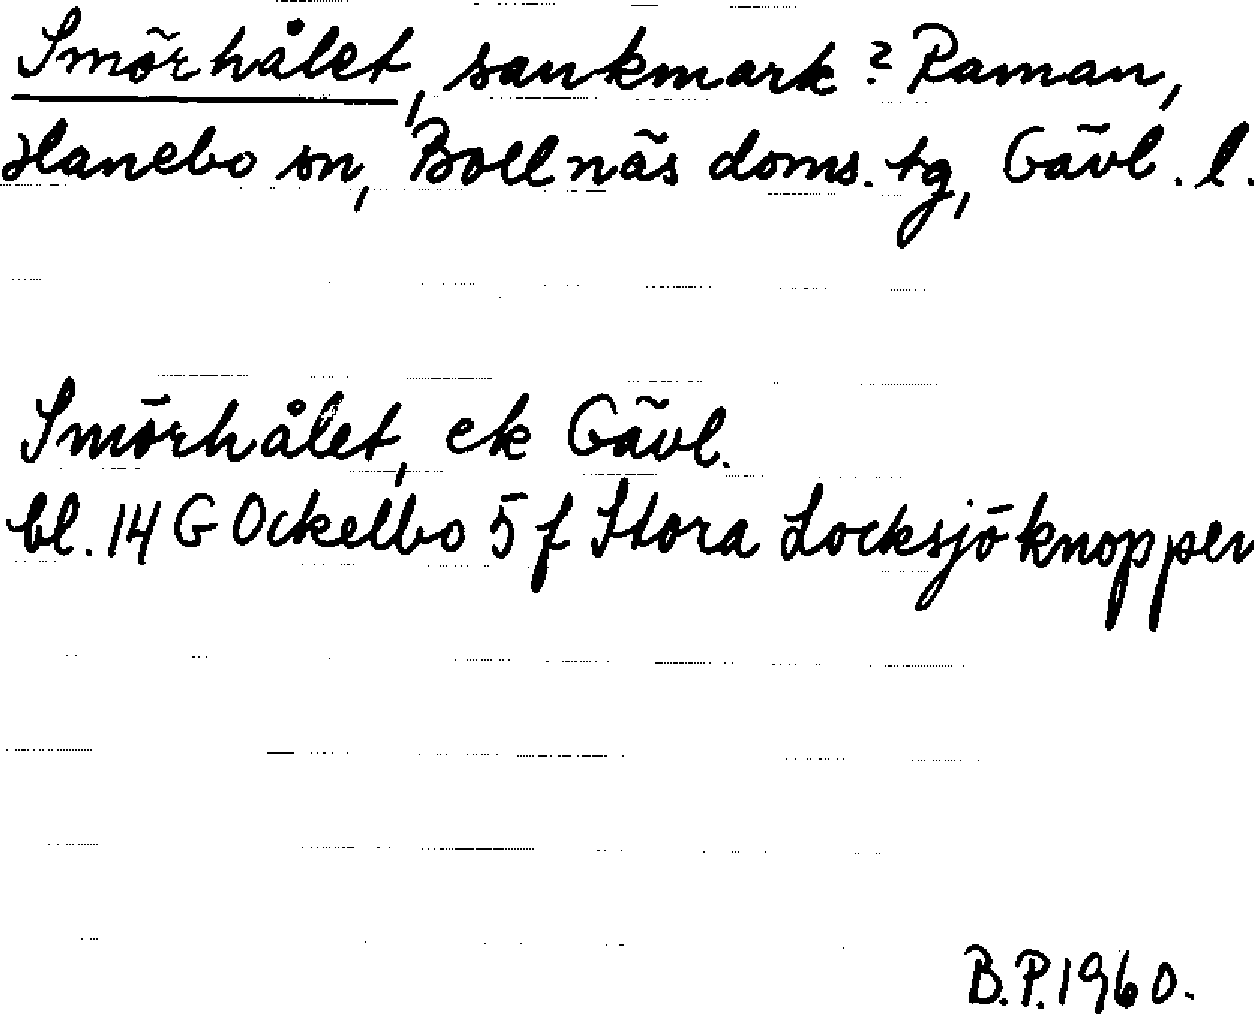 Smörhålet, sankmark? Raman,
Hanebo sn, Bollnäs doms. tg, Gävl. l.
Smörhålet, ek Gävl.
bl. 14 G Ockelbo 5 f Stora Locksjöknoppen
B.P. 1960.